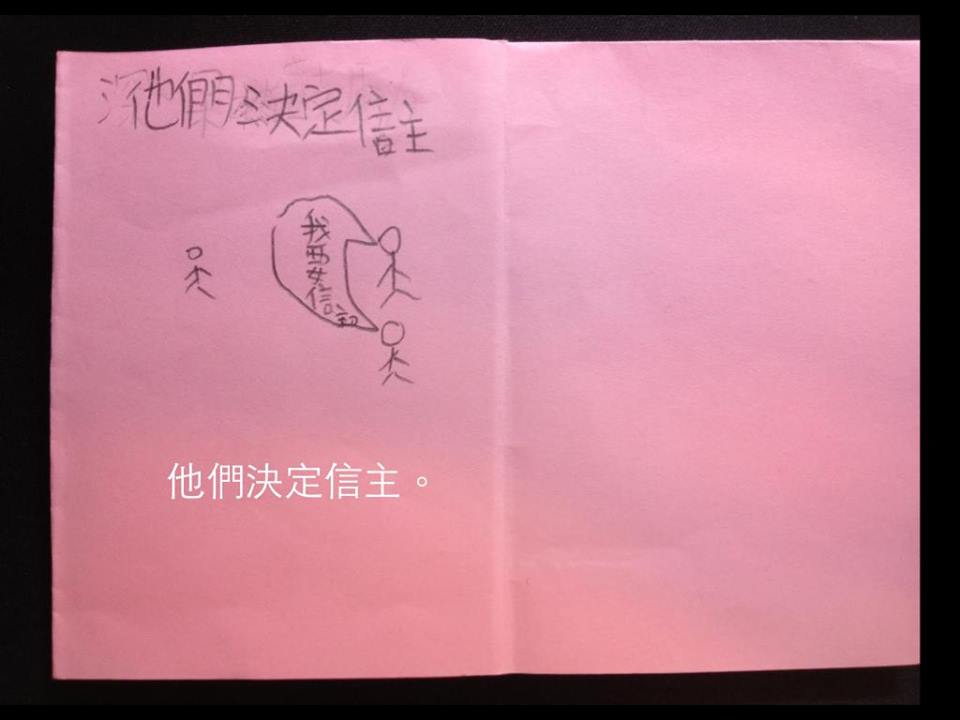 他們決定信主
我要信主
他們決定信主。